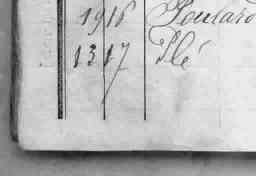 1916 Poulard
1317 Plé